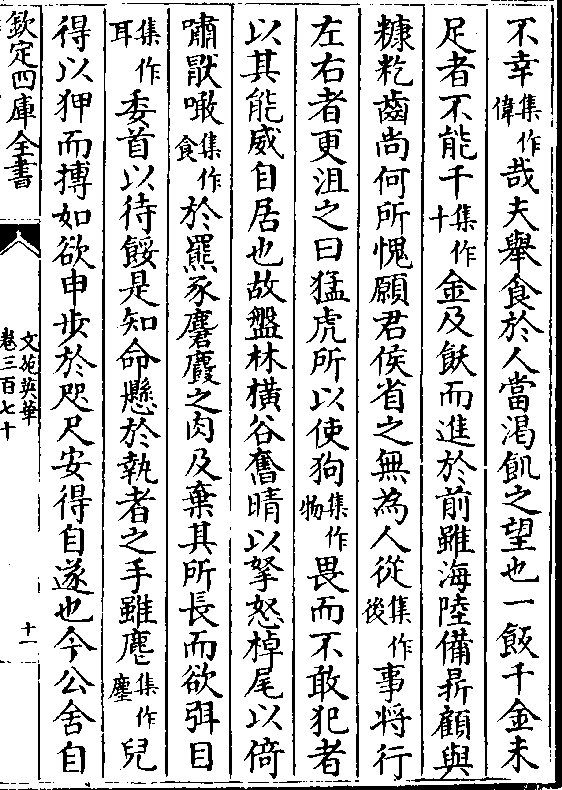 不幸集作偉哉夫舉食於人當渴飢之望也一飯千金未
足者不能千集作十金及飫而進於前雖海陸備鼎顧與
糠籺齒尚何所愧願君侯省之無為人從集作後事將行
左右者更沮之曰猛虎所以使狗集作物畏而不敢犯者
以其能威自居也故盤林橫谷奮晴以拏怒棹尾以倚
嘯㱃噉集作食於羆豕麏麚之肉及棄其所長而欲弭目
集作耳委首以待餒是知命懸於執者之手雖麀集作麈兒
得以狎而搏如欲申步於咫尺安得自遂也今公舍自
欽定四庫全書
文苑英華
卷三百七十
十一